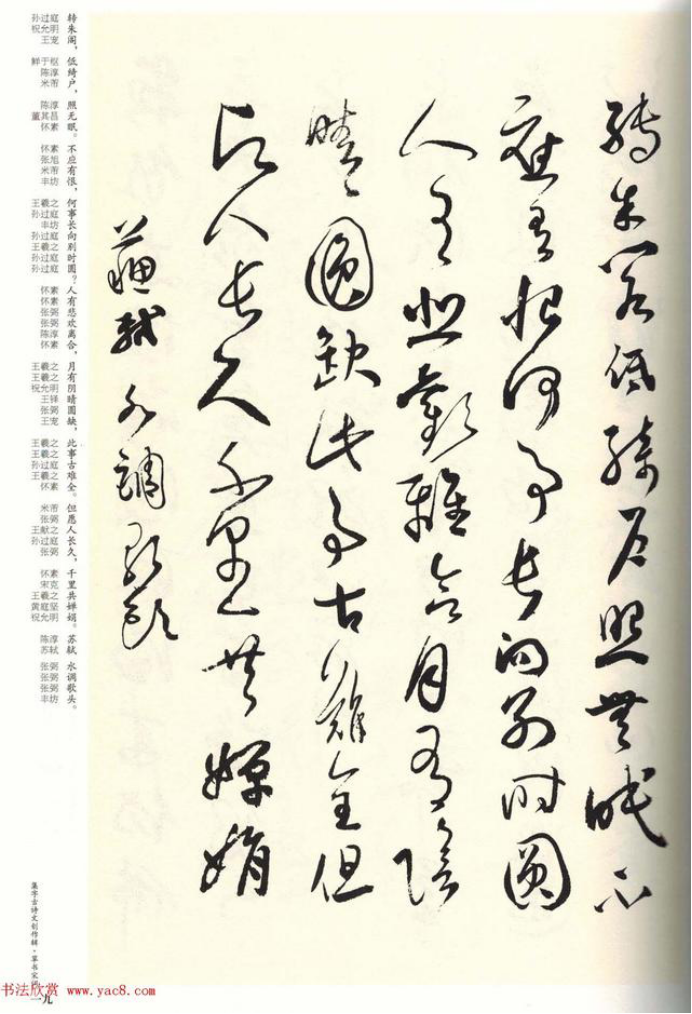 轉朱閣低綺戶照無眠不
應有恨何事長向別時圓
人有悲歡離合月有陰
晴圓缺此事古難全但
願人長久千里共嬋娟
蘇軾水調歌頭
转朱阁，
孙过庭
祝允明
王宠
低绮户，
鲜于枢
陈淳
米芾
照无眠。
陈淳
董其昌
怀素
不应有恨，
怀素
张旭
米芾
丰坊
何事长向别时圆？
王羲之
孙过庭
丰坊
孙过庭
王羲之
孙过庭
孙过庭
人有悲欢离合，
怀素
怀素
张弼
张弼
陈淳
怀素
月有阴晴圆缺，
王羲之
王羲之
祝允明
王铎
张弼
王宠
此事古难全。
王羲之
王羲之
孙过庭
王羲之
怀素
但愿人长久，
米芾
张弼
王献之
孙过庭
张弼
千里共婵娟。
怀素
宋克
王羲之
黄庭坚
祝允明
苏轼
陈淳
苏轼
水调歌头。
张弼
张弼
张弼
丰坊
集字古诗文创作辑·草书宋词
一九
书法欣赏 www.yac8.com